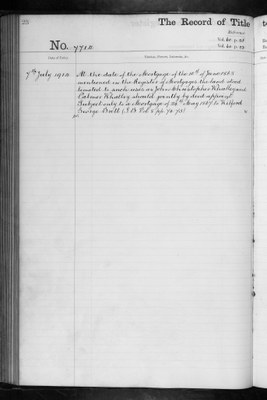 25
The Record of Title
Reference
Vol. 80 p. 58
Vol. 80 p. 59
No. 7712
Date of Entry.
7th July 1912
At the date of the Mortgage of the 10th of June 1882
mentioned in the Register of Mortgages the land stood
limited to such uses as John Christopher Whatley and
Palmer Whatley should jointly by deed appoint
Subject only to a Mortgage of 24th May 1867 to Wilfred
George Brett